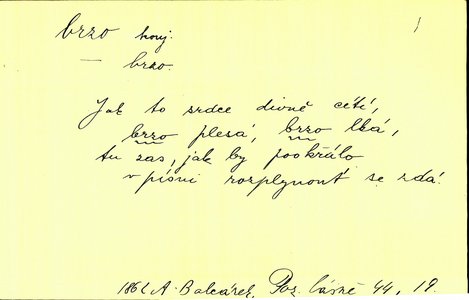 brzo konj.
— brzo.
Jak to srdce divně cítí,
brzo plesá, brzo lká,
tu zas, jak by pookřálo
v písni rozplynouť se zdá.
1862 A. Balcárek, Poz. básně 44, 19.